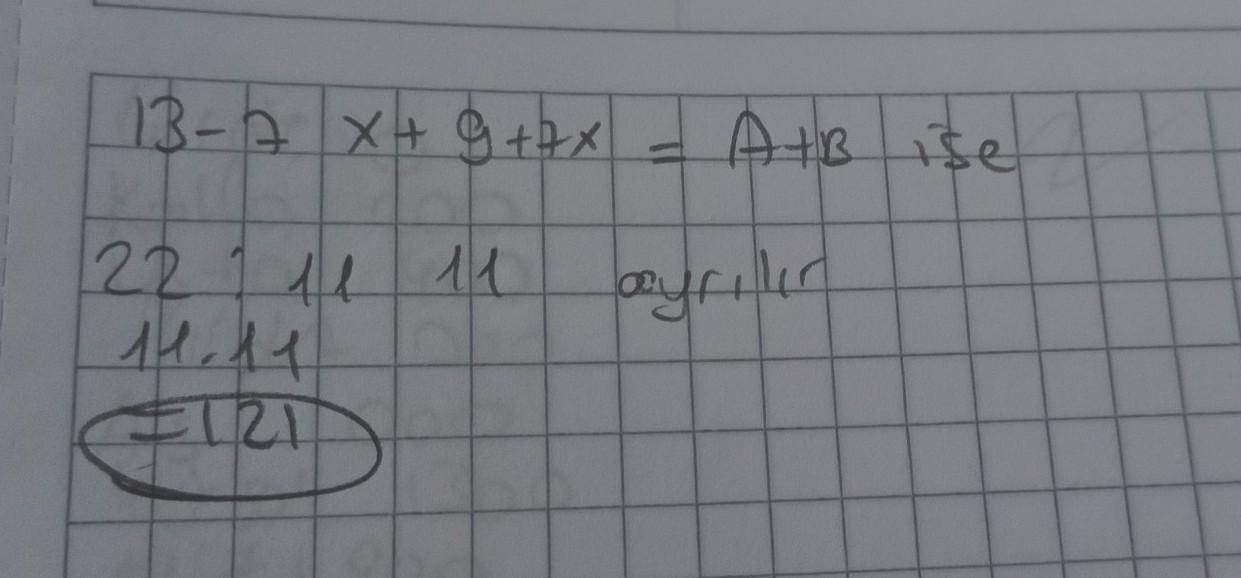 13-7 x+ 9+7x = A+B ise
22 : 11 11 ayrılır
11.11
=121